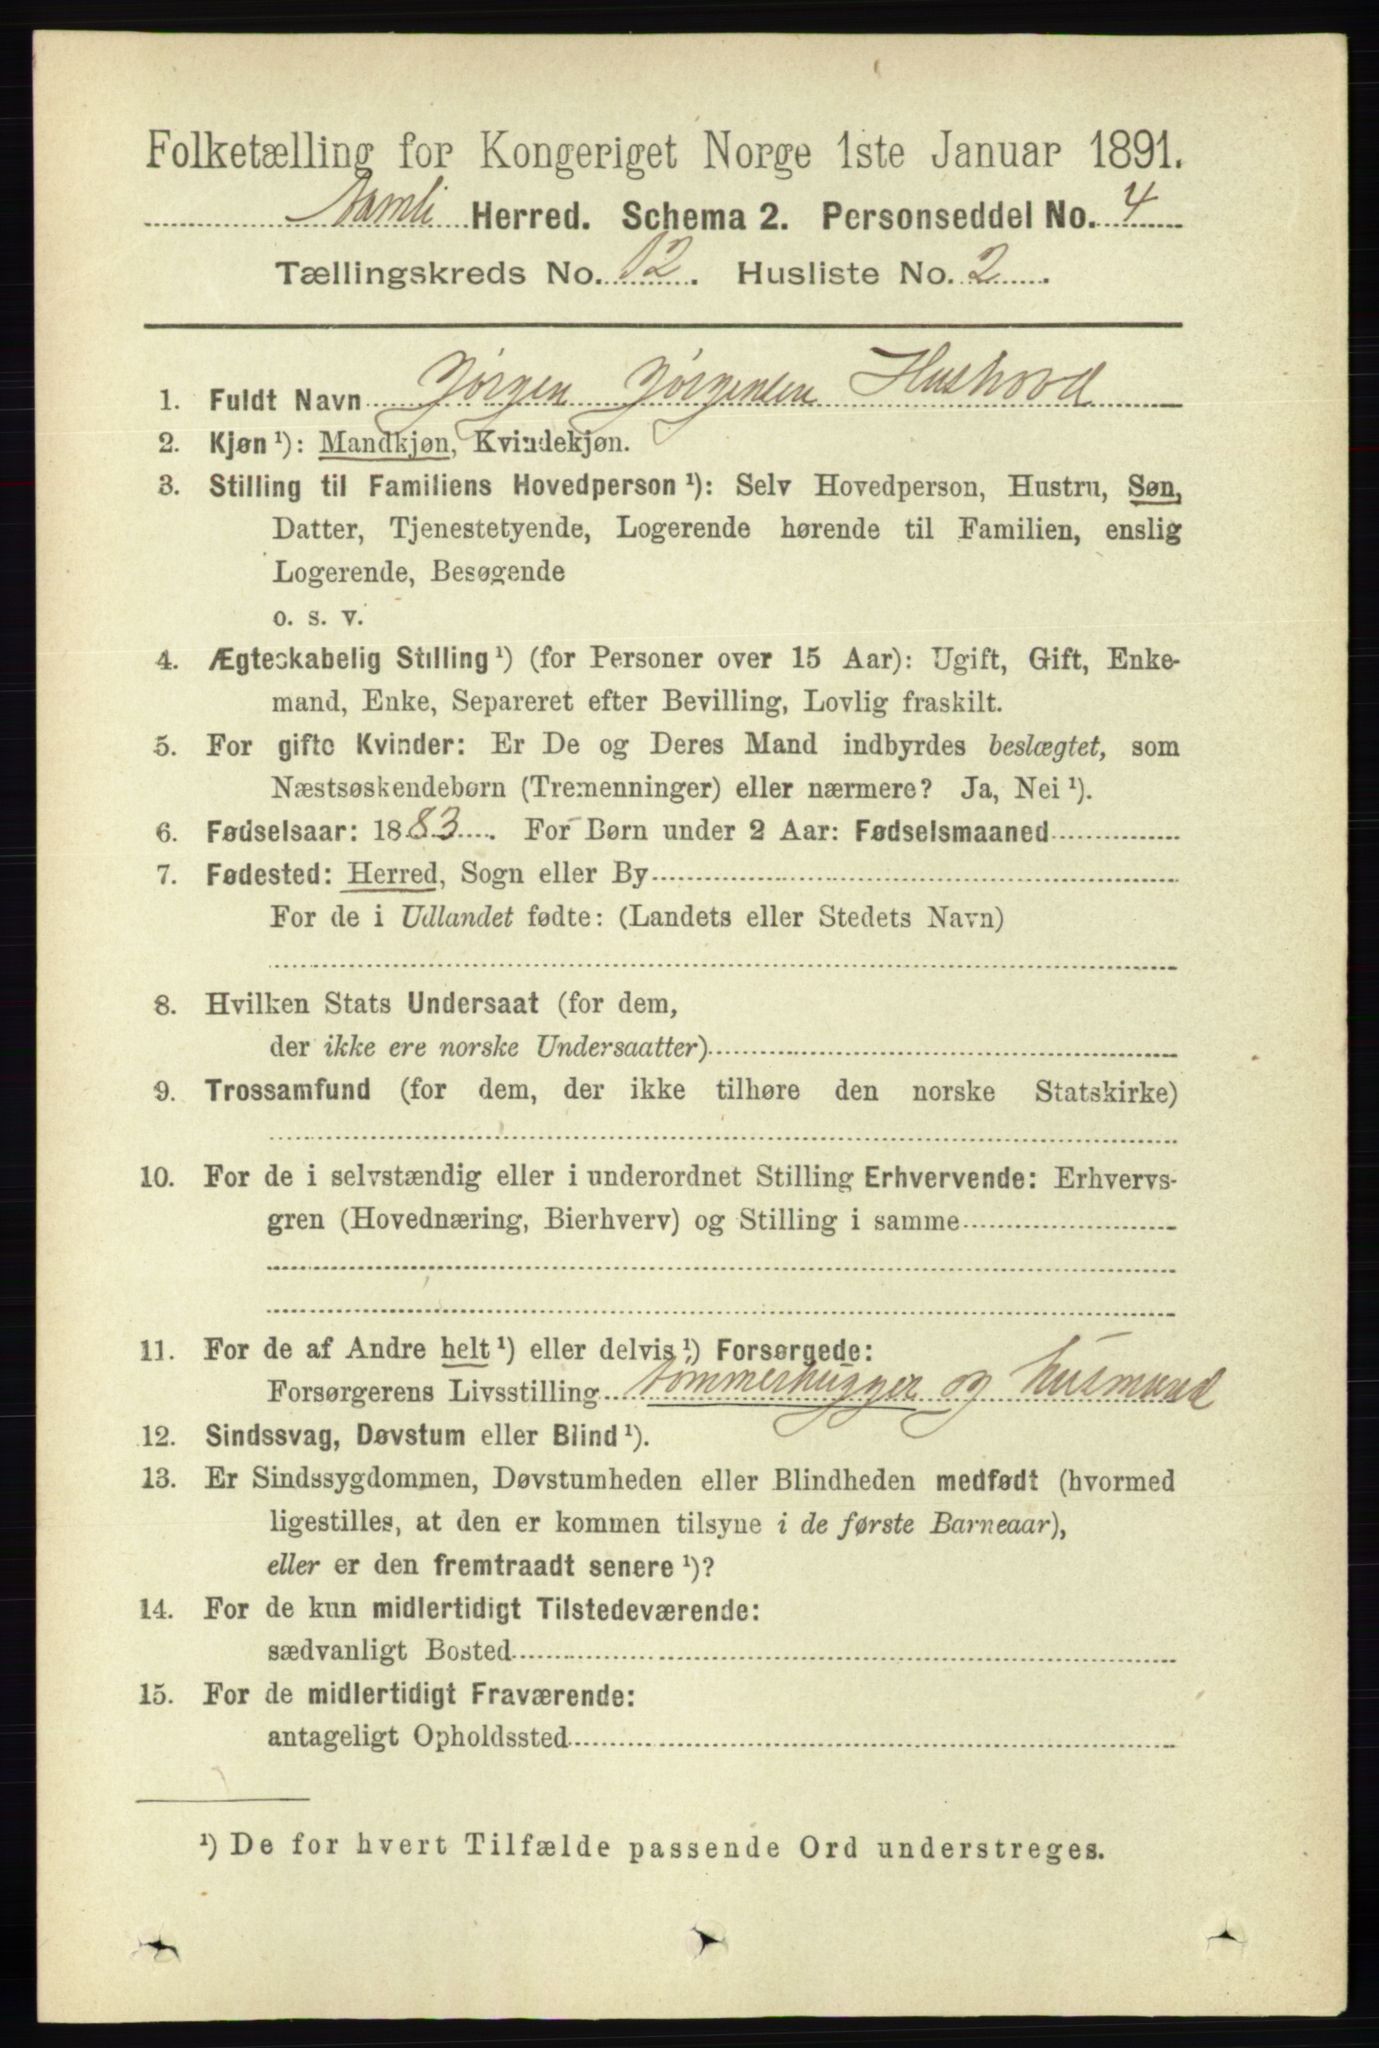 Folketælling for Kongeriget Norge 1ste Januar 1891.
Aamli Herred. Schema 2. Personseddel No. 4
Tællingskreds No. 12. Husliste No. 2.
1. Fuldt Navn Jørgen Jørgensen Hushovd
2. Kjøn ¹): Mandkjøn, Kvindekjøn.
3. Stilling til Familiens Hovedperson ¹): Selv Hovedperson, Hustru, Søn,
Datter, Tjenestetyende, Logerende hørende til Familien, enslig
Logerende, Besøgende
o. s. v.
4. Ægteskabelig Stilling ¹) (for Personer over 15 Aar): Ugift, Gift, Enke-
mand, Enke, Separeret efter Bevilling, Lovlig fraskilt.
5. For gifte Kvinder: Er De og Deres Mand indbyrdes beslægtet, som
Næstsøskendebørn (Tremenninger) eller nærmere? Ja, Nei ¹).
6. Fødselsaar: 1883. For Børn under 2 Aar: Fødselsmaaned
7. Fødested: Herred, Sogn eller By
For de i Udlandet fødte: (Landets eller Stedets Navn)
8. Hvilken Stats Undersaat (for dem,
der ikke ere norske Undersaatter)
9. Trossamfund (for dem, der ikke tilhøre den norske Statskirke)
10. For de i selvstændig eller i underordnet Stilling Erhvervende: Erhvervs-
gren (Hovednæring, Bierhverv) og Stilling i samme
11. For de af Andre helt ¹) eller delvis ¹) Forsørgede:
Forsørgerens Livsstilling tømmerhugger og husmand
12. Sindssvag, Døvstum eller Blind ¹).
13. Er Sindssygdommen, Døvstumheden eller Blindheden medfødt (hvormed
ligestilles, at den er kommen tilsyne i de første Barneaar),
eller er den fremtraadt senere ¹)?
14. For de kun midlertidigt Tilstedeværende:
sædvanligt Bosted
15. For de midlertidigt Fraværende:
antageligt Opholdssted
¹) De for hvert Tilfælde passende Ord understreges.